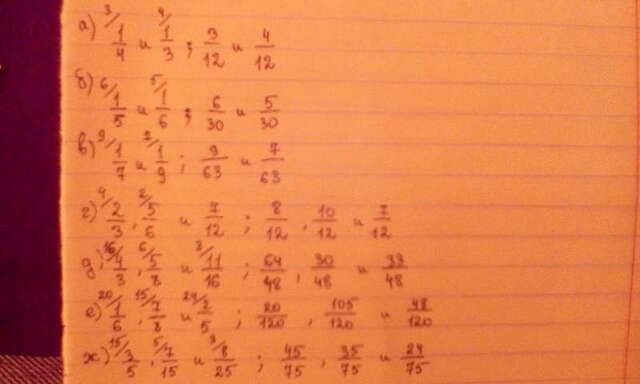 а) 3/ 1/4 и 4/ 1/3 ; 3/12 и 4/12
б) 6/ 1/5 и 5/ 1/6 ; 6/30 и 5/30
в) 9/ 1/7 и 7/ 1/9 ; 9/63 и 7/63
г) 4/ 2/3 , 2/ 5/6 и 7/12 ; 8/12 , 10/12 и 7/12
д) 16/ 4/3 , 6/ 5/8 и 3/ 11/16 ; 64/48 , 30/48 и 33/48
е) 20/ 1/6 , 15/ 7/8 и 24/ 2/5 ; 20/120 , 105/120 и 48/120
ж) 15/ 3/5 , 5/ 7/15 и 3/ 8/25 ; 45/75 , 35/75 и 24/75